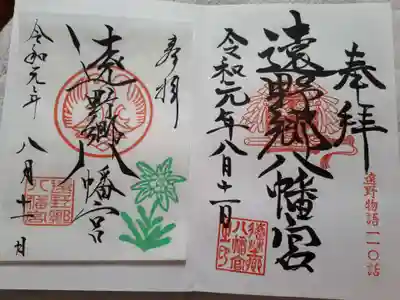 奉拝
遠野郷八幡宮
令和元年八月十一日
遠野物語一一〇話
奉拝
遠野郷八幡宮
令和元年 八月十一日
遠野郷
八幡宮